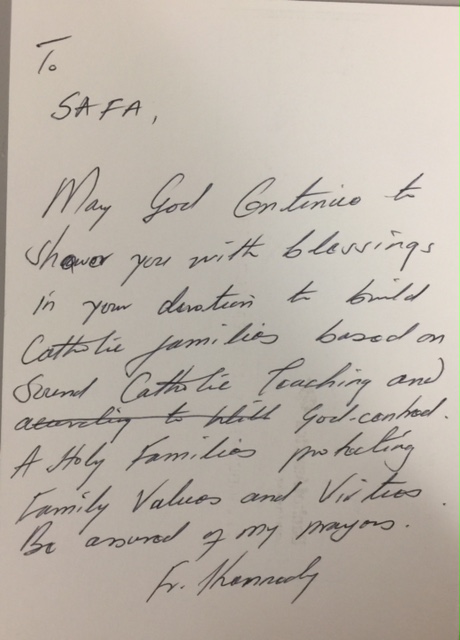 To
SAFA,
May God Continue to
shower you with blessings
in your devotion to build
Catholic families based on
Sound Catholic Teaching and
according to God-centred.
A Holy Families protecting
Family Values and Virtues.
Be assured of my prayers.
Fr. Kennedy